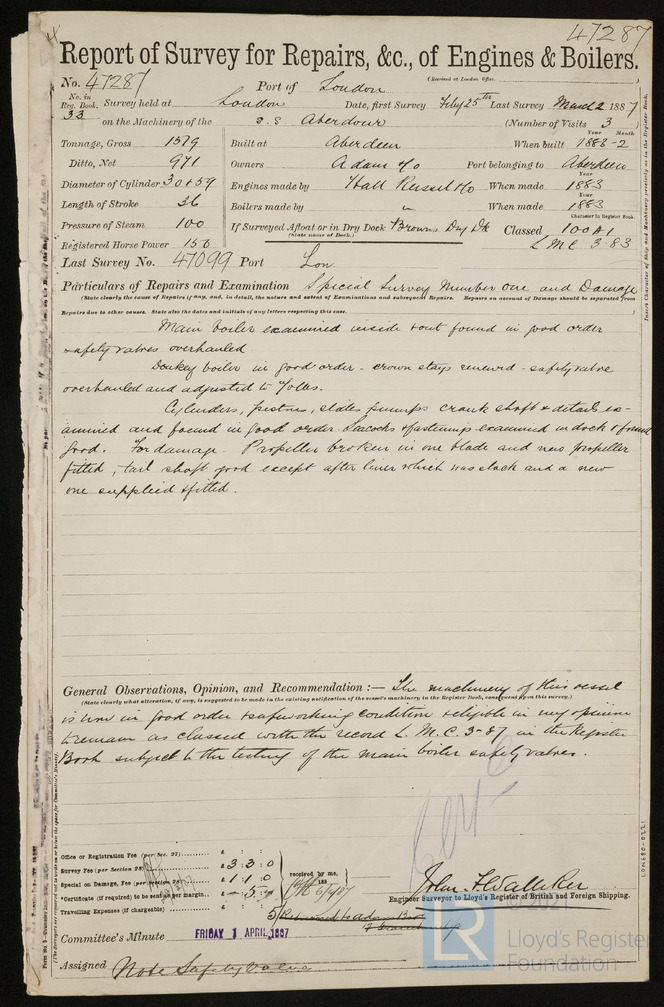 47287
Report of Survey for Repairs, &c., of Engines & Boilers.
(Received at London Office
No. 47287 Port of London
No. in Reg. Book. Survey held at London Date, first Survey Feby 25th Last Survey March 2 1887
33 on the Machinery of the S.S. Aberdour (Number of Visits 3 )
Tonnage, Gross 1519 Built at Aberdeen When built 1883-2
Year Month
Ditto, Net 971 Owners Adam & Co Port belonging to Aberdeen
Diameter of Cylinder 30 & 59 Engines made by Hall Russel & Co When made 1883
Year
Length of Stroke 36 Boilers made by " When made 1883
Year
Pressure of Steam 100 If Surveyed Afloat or in Dry Dock Browns Dry Dk Classed 100 A1
(State name of Dock.)
Character in Register Book.
Registered Horse Power 150 L M C 3.83
Last Survey No. 47099 Port Lon
Particulars of Repairs and Examination Special Survey Number one and Damage
(State clearly the cause of Repairs if any, and, in detail, the nature and extent of Examinations and subsequent Repairs. Repairs on account of Damage should be separated from
Repairs due to other causes. State also the dates and initials of any letters respecting this case.)
Main boiler examined inside & out found in good order
& safety valves overhauled
Donkey boiler in good order - crown stays renewed - safety valve
overhauled and adjusted to 70 lbs.
Cylinders, pistons, slides pumps crank shaft & details ex-
amined and found in good order. Seacocks & fastenings examined in dock & found
good. For damage - Propeller broken in one blade and new propeller
fitted, tail shaft good except after liner which was slack and a new
one supplied & fitted.
General Observations, Opinion, and Recommendation :— The machinery of this vessel
(State clearly what alteration, if any, is suggested to be made in the existing notification of the vessel's machinery in the Register Book, consequent upon this survey.)
is now in good order & safe working condition & eligible in my opinion
to remain as classed with the record L.M.C. 3-87 in the Register
Book subject to the testing of the main boiler safety valves.
Office or Registration Fee (per Sec. 27) £ : :
Survey Fee (per Section 28) £ 3 : 3 : 0
Special on Damage, Fee (per Section 28) £ 1 : 1 : 0
*Certificate (if required) to be sent as per margin £ - : 5 :
Travelling Expenses (if chargeable) £ : :
received by me,
John H Walliker
Engineer Surveyor to Lloyd's Register of British and Foreign Shipping.
Committee's Minute FRIDAY 1 APRIL 1887
Assigned Note Safety Valve
LON680-0221
© 2021
LR
Lloyd's Register
Foundation